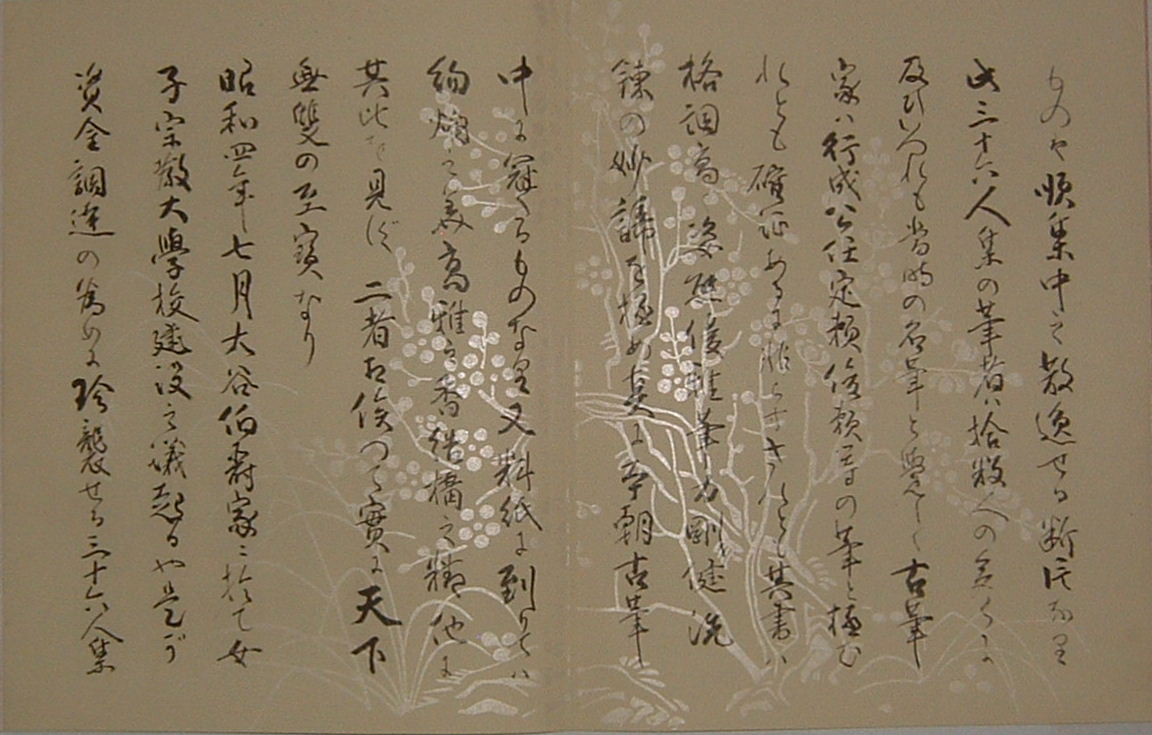 ものや順集中之散逸せる断簡なり
此三十六人集の筆者ハ拾数人の多くに
及ひいつれも当時の名筆と覚しく古筆
家ハ行成公任定頼俊頼等の筆と極む
れとも確証あるに非らすされと其書ハ
格調高 姿態優雅筆力剛健洗
錬の妙諦を極め真に本朝古筆
中に冠たるものなり又料紙に到りてハ
絢爛之美高雅之香結構之精他に
其比を見ず二者相俟つて実に天下
無雙の至宝なり
昭和四年七月大谷伯爵家ニ於て女
子宗教大學校建設之議起るや是が
資金調達の為めに珍襲せる三十六人集